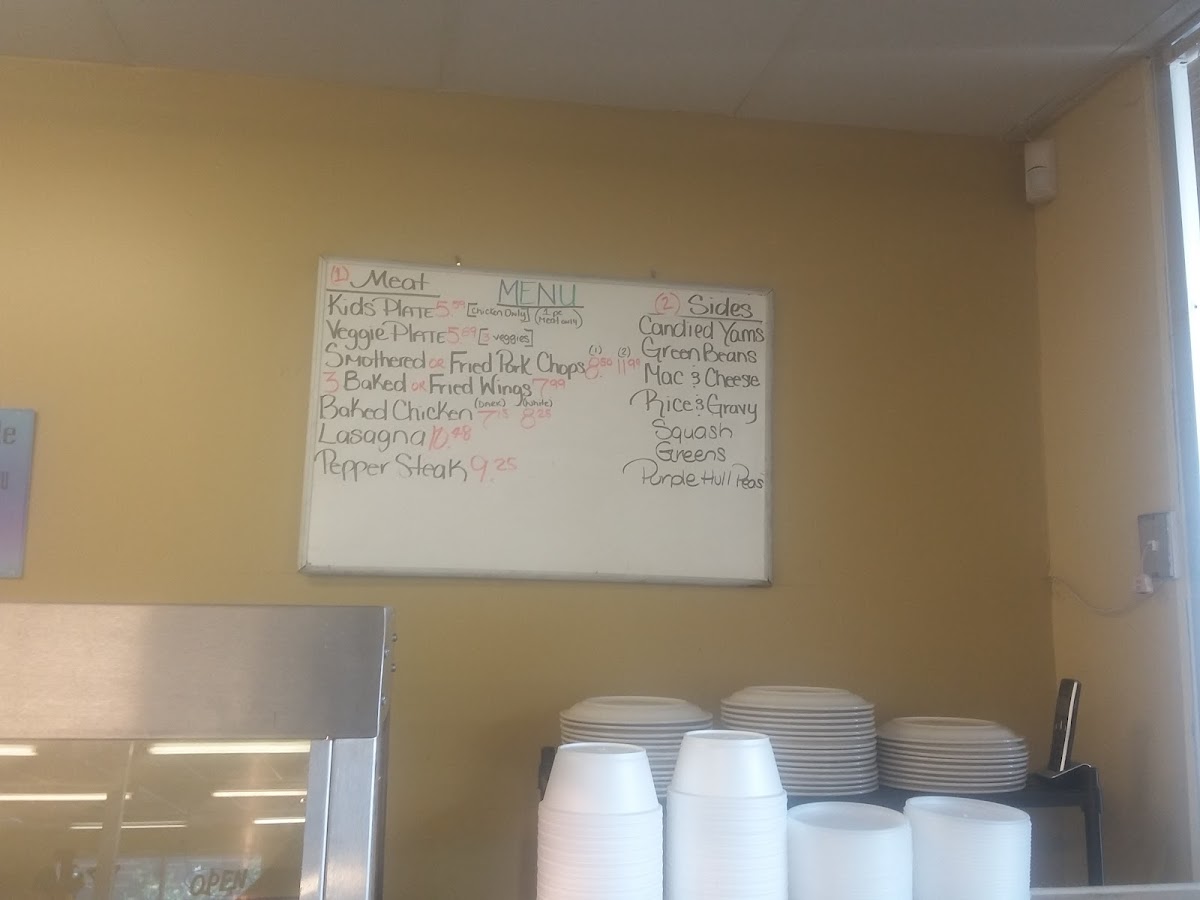 MENU
(1) Meat
Kids' Plate 5.59 [Chicken Only] (1 pc Meat only)
Veggie Plate 5.69 [3 veggies]
Smothered or Fried Pork Chops (1) 8.50 (2) 11.99
3 Baked or Fried Wings 7.99
Baked Chicken (Dark) 7.15 (White) 8.25
Lasagna 10.48
Pepper Steak 9.25
(2) Sides
Candied Yams
Green Beans
Mac & Cheese
Rice & Gravy
Squash
Greens
Purple Hull Peas
OPEN